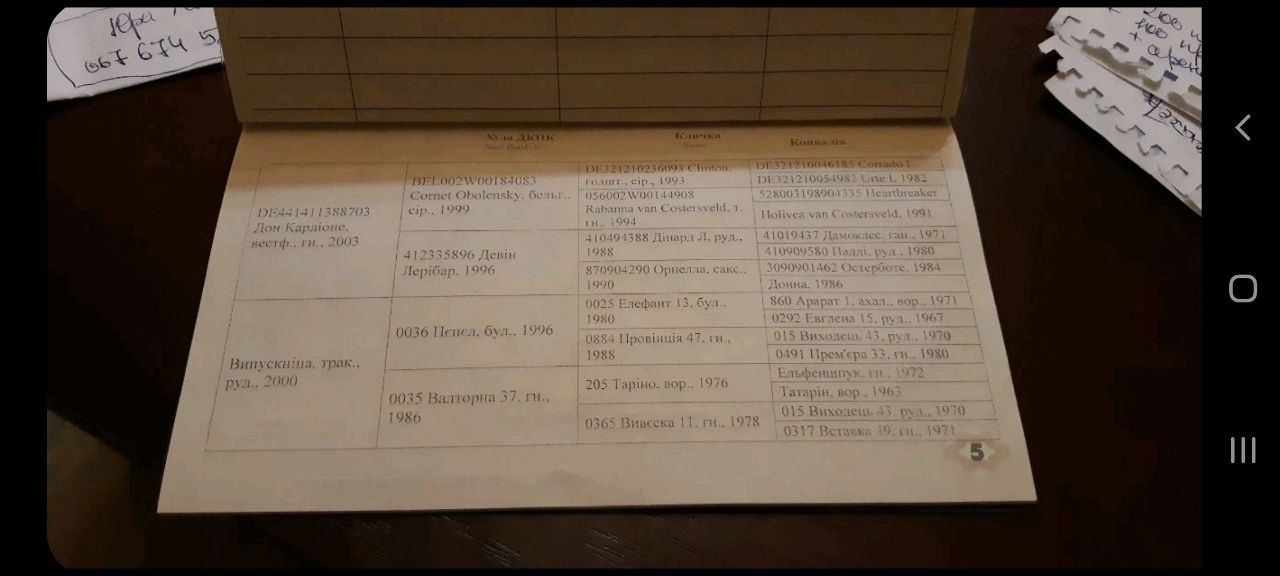 Юра
067 674 5
+ арен
№ за ДКПК
Кличка
Name
Конвалія
DE441411388703
Дон Карліоне,
вестф., гн., 2003
Випускніца, трак.,
руд., 2000
BEL002W00184083
Cornet Obolensky, бельг.,
сір., 1999
412335896 Девін
Лерібар, 1996
0036 Пепел, бул., 1996
0035 Валторна 37, гн.,
1986
DE321210236093 Clinton,
голшт., сір., 1993
056002W00144908
Rabanna van Costersveld, т.
гн., 1994
410494388 Дінард Л, руд.,
1988
870904290 Орнелла, сакс.,
1990
0025 Елефант 13, бул.,
1980
0884 Провінція 47, гн.,
1988
205 Таріно, вор., 1976
0365 Вивєска 11, гн., 1978
DE321210046185 Corrado I
DE321210054982 Urte I, 1982
528003198904335 Heartbreaker
Holivea van Costersveld, 1991
41019437 Дамоклес, ган., 1971
410909580 Палді, руд., 1980
3090901462 Остерботе, 1984
Донна, 1986
860 Арарат 1, ахал., вор., 1971
0292 Евглена 15, руд., 1967
015 Виходець 43, руд., 1970
0491 Прем'єра 33, гн., 1980
Ельфеншпук, гн., 1972
Татарін, вор., 1963
015 Виходець 43, руд., 1970
0317 Вставка 49, гн., 1971
5